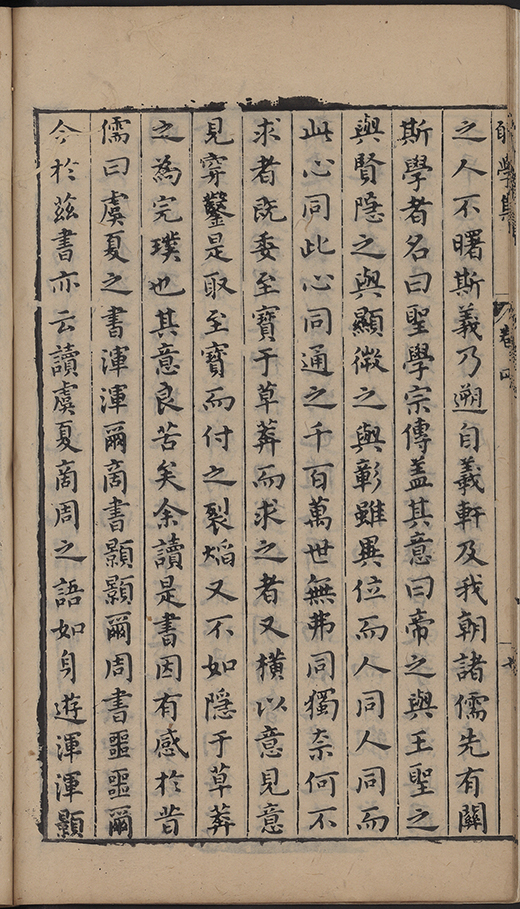 之人不曙斯義乃遡自羲軒及我朝諸儒先有關
斯學者名曰聖學宗傳蓋其意曰帝之與王聖之
與賢隱之與顯微之與彰雖異位而人同人同而
此心同此心同通之千百萬世無弗同獨奈何不
求者既委至寶于草莽而求之者又橫以意見意
見穿鑿是取至寶而付之裂熖又不如隱于草莽
之為完璞也其意良苦矣余讀是書因有感於昔
儒曰虞夏之書渾渾爾商書顥顥爾周書噩噩爾
今於茲書亦云讀虞夏商周之語如身遊渾渾顥